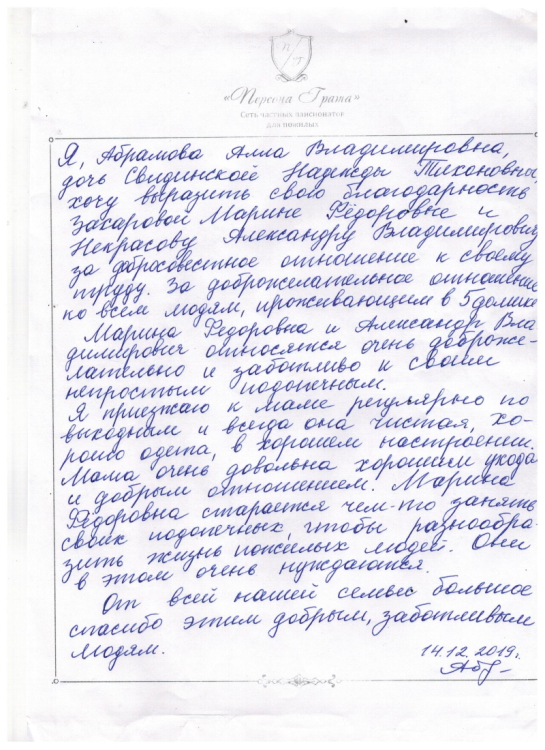 П Г
«Персона Грата»
Сеть частных пансионатов
для пожилых
Я, Абрамова Алла Владимировна,
дочь Свидинской Надежды Тихоновны,
хочу выразить свою благодарность
Захаровой Марине Фёдоровне и
Некрасову Александру Владимировичу
за добросовестное отношение к своему
труду. За доброжелательное отношение
ко всем людям, проживающим в 5 домике
Марина Фёдоровна и Александр Вла
димирович относятся очень доброже-
лательно и заботливо к своим
непростым подопечным.
Я приезжаю к маме регулярно по
выходным и всегда она чистая, хо-
рошо одета, в хорошем настроении.
Мама очень довольна хорошим ухода
и добрым отношением. Марина
Фёдоровна старается чем-то занять
своих подопечных, чтобы разнообра-
зить жизнь пожилых людей. Они
в этом очень нуждаются.
От всей нашей семьи большое
спасибо этим добрым, заботливым
людям.
14.12.2019г.